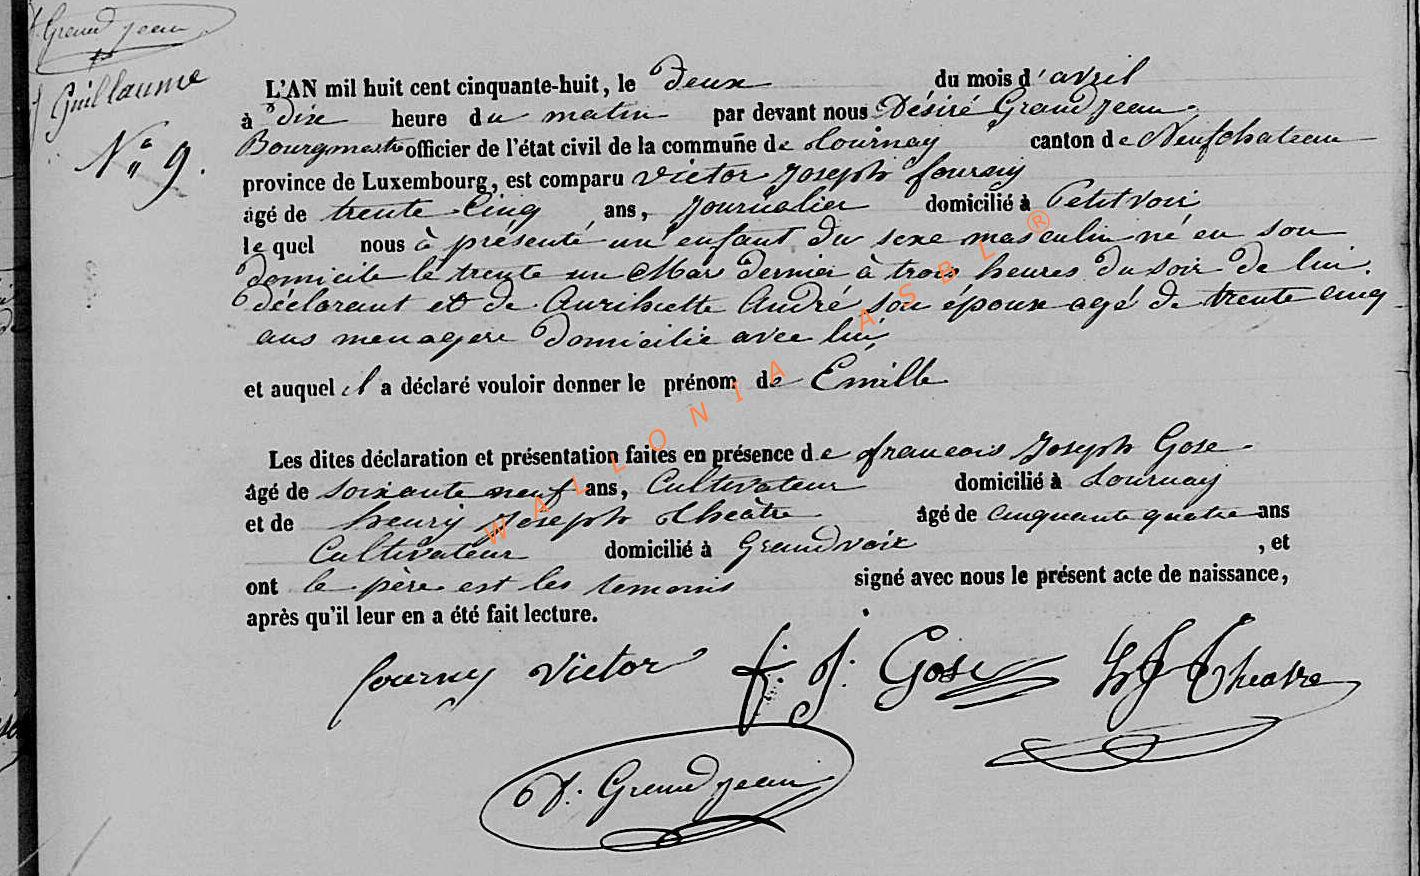 Grand jean
Guillaume
N° 9.
L'AN mil huit cent cinquante-huit, le Deux du mois d'avril
à Dix heure du matin par devant nous Désiré Grandjean
Bourgmestre officier de l'état civil de la commune de Tournay canton de Neufchateau
province de Luxembourg, est comparu Victor Joseph fourny
âgé de trente Cinq ans, Journalier domicilié à Petitvoir
lequel nous à présenté un enfant du sexe masculin né en son
domicile le trente un Mars dernier à trois heures du soir de lui
déclarant et de André son épouse agé de trente cinq
ans menagere domicilié avec lui
et auquel il a déclaré vouloir donner le prénom de Emille
Les dites déclaration et présentation faites en présence de francois Joseph Gose
âgé de soixante neuf ans, Cultivateur domicilié à Tournay
et de henry Joseph théâtre âgé de cinquante quatre ans
Cultivateur domicilié à Grandvoir , et
ont le père est les temoins signé avec nous le présent acte de naissance,
après qu'il leur en a été fait lecture.
fourny Victor f. J. Gose HJ Theatre
D. Grandjean
WALLONIA ASBL ®